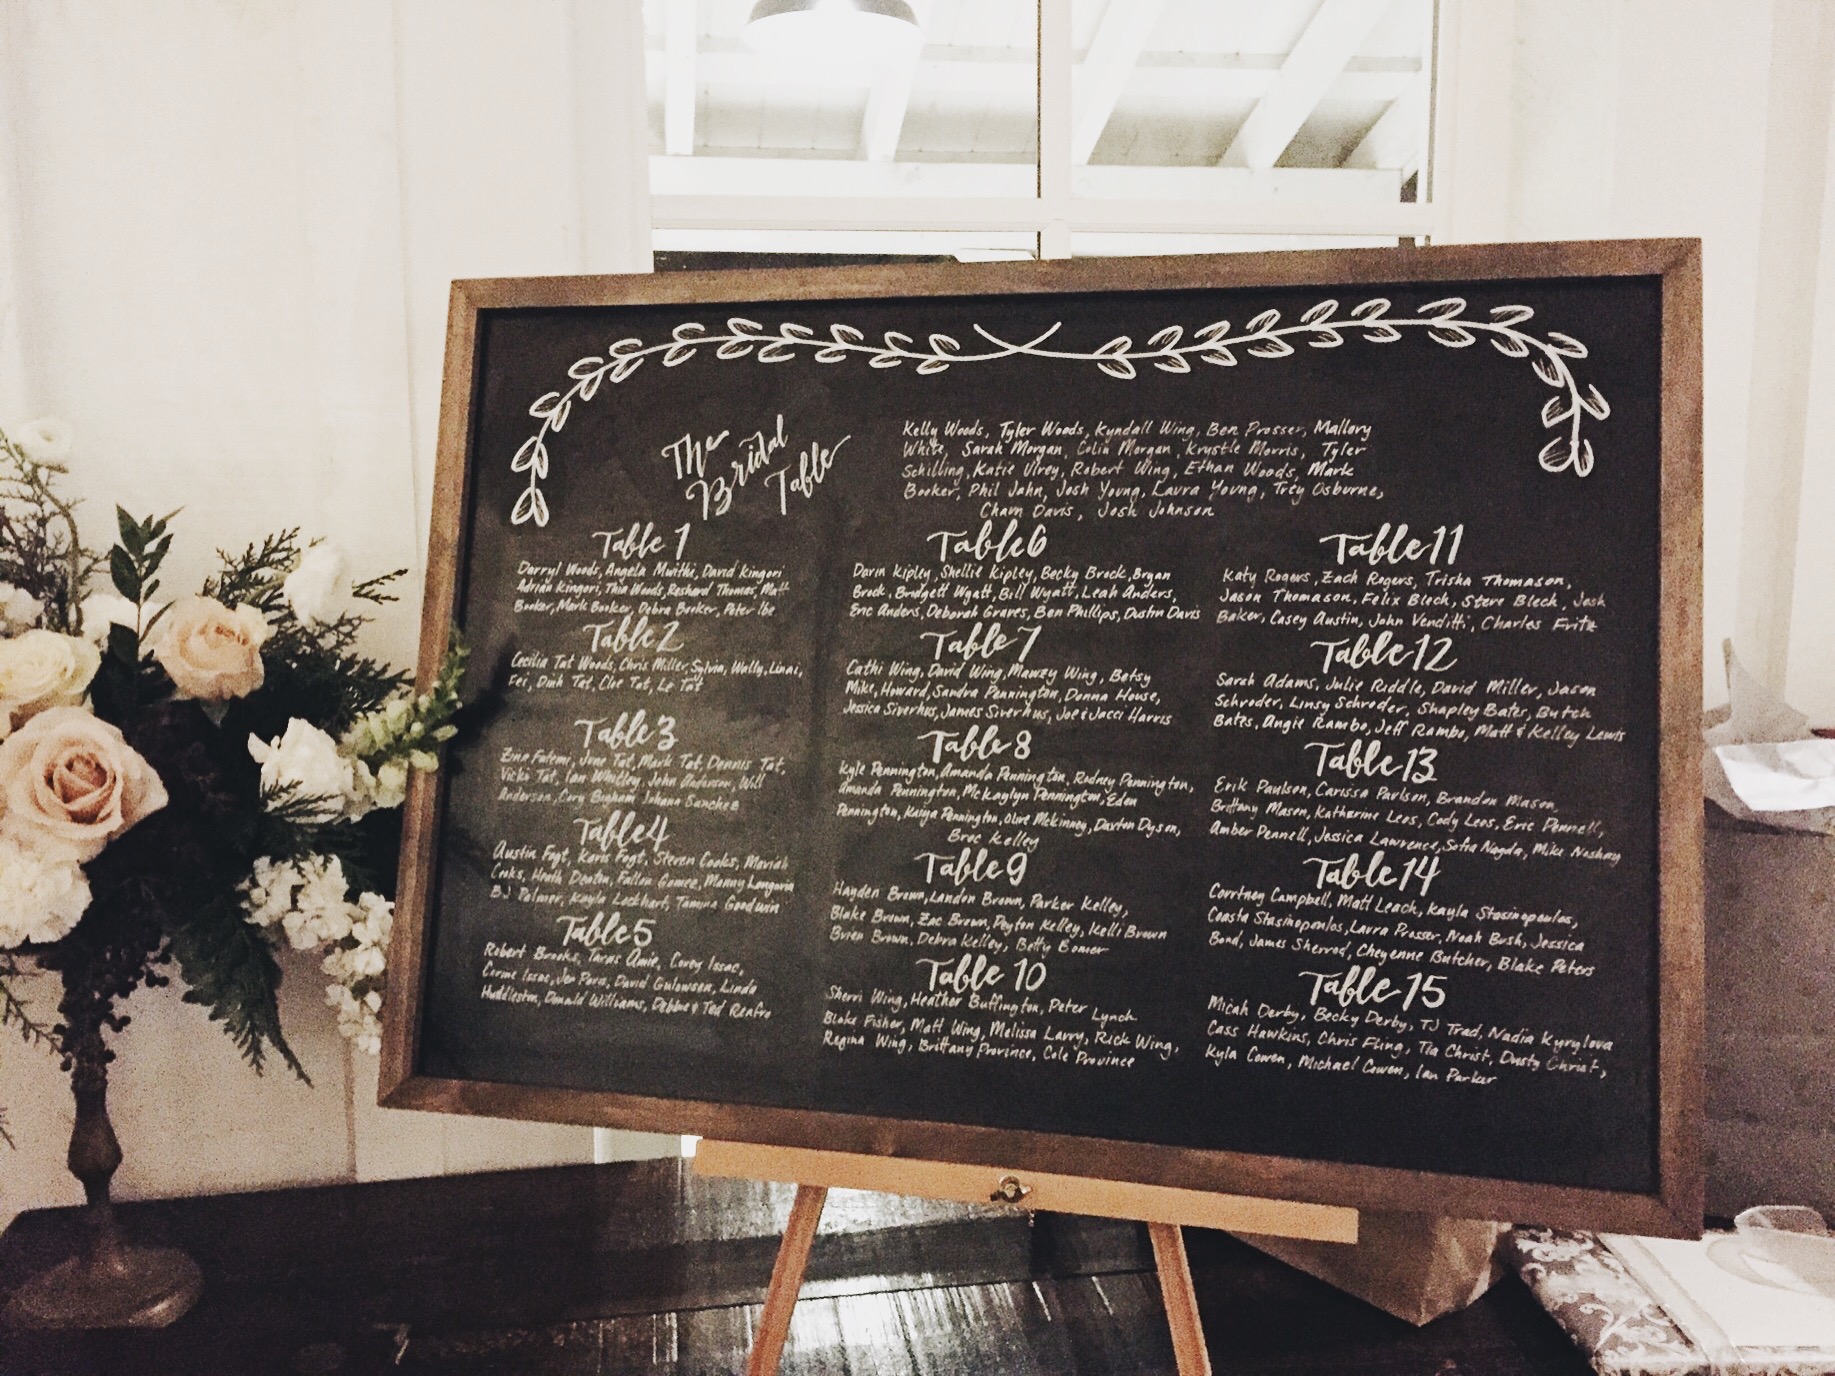 The
Bridal
Table
Kelly Woods, Tyler Woods, Kyndall Wing, Ben Prosser, Mallory
White, Sarah Morgan, Colin Morgan, Krystle Morris, Tyler
Schilling, Katie Ulrey, Robert Wing, Ethan Woods, Mark
Booker, Phil Jahn, Josh Young, Laura Young, Trey Osburne,
Davis, Josh Johnson
Table 1
Darryl Woods, Angela Mwithi, David Kingori
Adrian Kingori, Thia Woods, Rashard Thomas, Matt
Booker, Mark Booker, Debra Booker, Peter Ibe
Table 2
Cecilia Tat Woods, Chris Miller, Sylvia, Wally, Linai,
Fei, Dinh Tat, Cloe Tat, Le Tat
Table 3
Fatemi, June Tat, Mark Tat, Dennis Tat,
Vicki Tat, Ian Whitley, John Anderson, Will
Anderson, Cory Bigham, Johana Sanchez
Table 4
Austin Fogt, Karis Fogt, Steven Cooks, Mariah
Cooks, Heath Denton, Fallon Gomez, Manny Longoria
BJ Palmer, Kayla Lockhart, Tamira Goodwin
Table 5
Robert Brooks, Taras Amie, Corey Issac,
Corine Issac, Jen Para, David Gulowsen, Linda
Huddleston, Donald Williams, Debbie & Ted Renfro
Table 6
Darin Kipley, Shellie Kipley, Becky Brock, Bryan
Brock, Bridgett Wyatt, Bill Wyatt, Leah Anders,
Eric Anders, Deborah Graves, Ben Phillips, Dustin Davis
Table 7
Cathi Wing, David Wing, Mawzy Wing, Betsy
Mike, Howard, Sandra Pennington, Donna House,
Jessica Siverhus, James Siverhus, Joe & Jacci Harris
Table 8
Kyle Pennington, Amanda Pennington, Rodney Pennington,
Amanda Pennington, McKaylyn Pennington, Eden
Pennington, Karya Pennington, Olive McKinney, Daxton Dyson,
Brec Kelley
Table 9
Hayden Brown, Landon Brown, Parker Kelley,
Blake Brown, Zac Brown, Peyton Kelley, Kelli Brown
Brien Brown, Debra Kelley, Betty Bomer
Table 10
Sherri Wing, Heather Buffington, Peter Lynch
Blake Fisher, Matt Wing, Melissa Larry, Rick Wing,
Regina Wing, Brittany Province, Cole Province
Table 11
Katy Rogers, Zach Rogers, Trisha Thomason,
Jason Thomason, Felix Blech, Steve Blech, Josh
Baker, Casey Austin, John Venditti, Charles Fritz
Table 12
Sarah Adams, Julie Riddle, David Miller, Jason
Schroder, Linsy Schroder, Shapley Bates, Butch
Bates, Angie Rambo, Jeff Rambo, Matt & Kelley Lewis
Table 13
Erik Paulson, Carissa Paulson, Brandon Mason,
Brittany Mason, Katharine Lees, Cody Lees, Eric Pennell,
Amber Pennell, Jessica Lawrence, Sofia Nagda, Mike Noshay
Table 14
Courtney Campbell, Matt Leach, Kayla Stasinopoulos,
Coasta Stasinopoulos, Laura Prosser, Noah Bush, Jessica
Bond, James Sherrod, Cheyenne Butcher, Blake Peters
Table 15
Micah Derby, Becky Derby, TJ Trad, Nadia Kyrylova
Cass Hawkins, Chris Fling, Tia Christ, Dusty Christ,
Kyla Cowen, Michael Cowen, Ian Parker